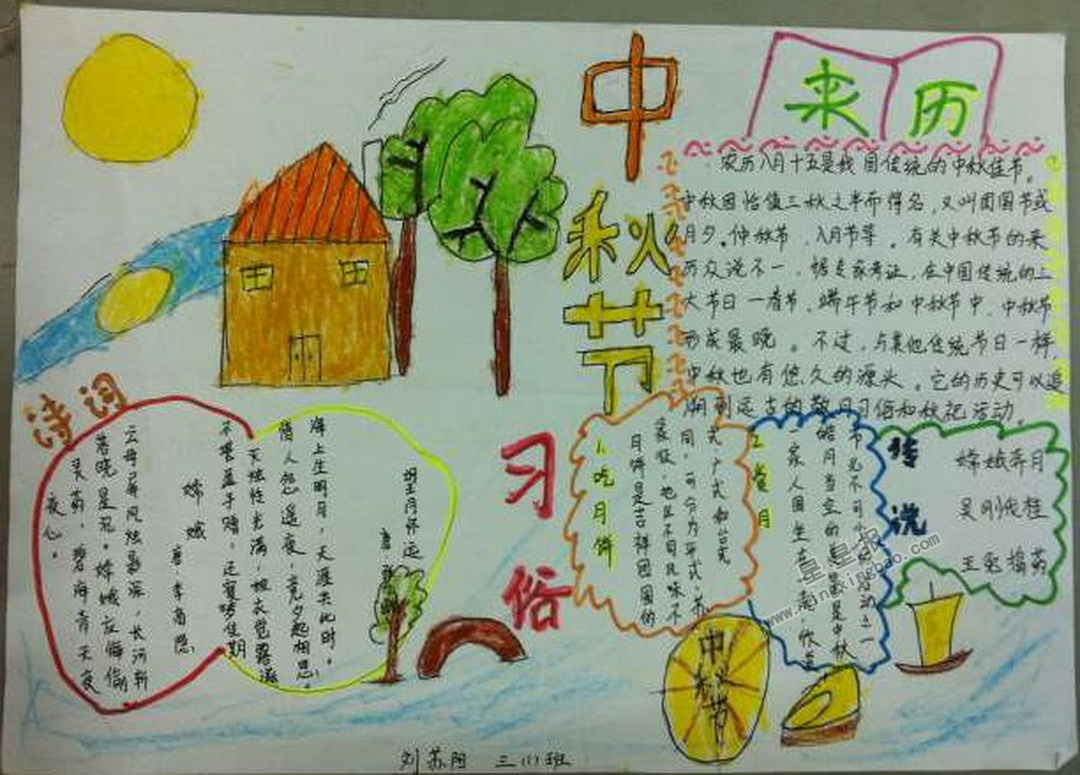 中秋节
来历
农历八月十五是我国传统的中秋佳节。
中秋因恰值三秋之半而得名,又叫团圆节或
月夕。仲秋节,八月节等。有关中秋节的来
历众说不一。据专家考证,在中国传统的三
大节日—春节、端午节和中秋节中,中秋节
形成最晚。不过,与其他传统节日一样,
中秋也有悠久的源头。它的历史可以追
溯到远古的敬月习俗和秋祀活动。
诗词
望月怀远
海上生明月,天涯共此时。
情人怨遥夜,竟夕起相思!
灭烛怜光满,披衣觉露滋
不堪盈手赠,还寝梦佳期
嫦娥
唐·李商隐
云母屏风烛影深,长河渐
落晓星沉。嫦娥应悔偷
灵药,碧海青天夜
夜心。
习俗
1.吃月饼
月饼是吉祥团圆的
家做,地区不同风味不
同,可分为京式、苏
式、广式和台式
2.赏月
家人围坐在
皓月当空的
传说
嫦娥奔月
吴刚伐桂
玉兔捣药
中秋节
刘苏阳 三(1)班
星星报
www.xinxingbao.com